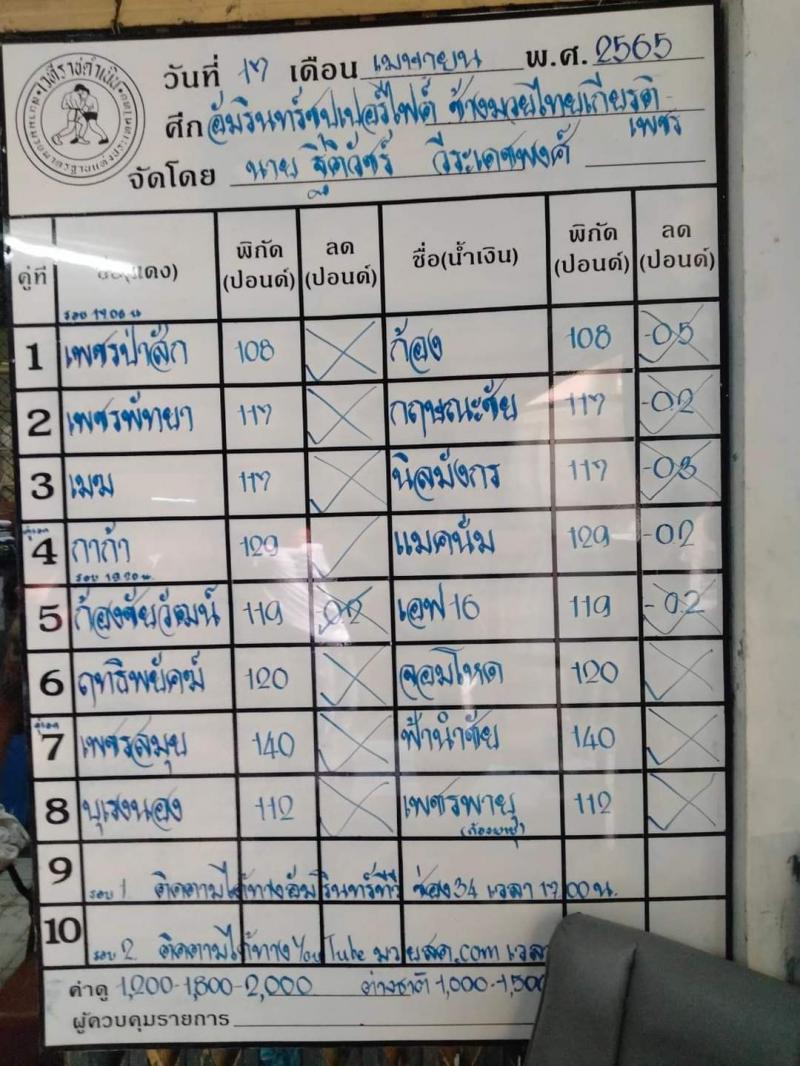 เวทีราชดำเนิน
วันที่ 17 เดือน เมษายน พ.ศ. 2565
ศึก อัมรินทร์ซุปเปอร์ไฟต์ ช้างมวยไทยเกียรติเพชร
จัดโดย นาย ธิติวัชร์ วีระเดชพงค์
คู่ที่ ชื่อ(แดง) พิกัด (ปอนด์) ลด (ปอนด์) ชื่อ(น้ำเงิน) พิกัด (ปอนด์) ลด (ปอนด์)
รอบ 17.00 น
1 เพชรป่าสัก 108 ก้อง 108 -0.5
2 เพชรพัทยา 117 กฤษณะชัย 117 -0.2
3 เมฆ 117 นิลมังกร 117 -0.3
คู่เอก
4 กาก้า 129 แมคนั่ม 129 -0.2
รอบ 19.20 น.
5 ก้องชัยวัฒน์ 119 -0.2 เอฟ16 119 -0.2
6 ฤทธิพยัคฆ์ 120 จอมโหด 120
คู่เอก
7 เพชรสมุย 140 ฟ้านำชัย 140
8 บุเรงนอง 112 เพชรพายุ 112
9 รอบ 1. ติดตามได้ทางอัมรินทร์ทีวี ช่อง34 เวลา 17.00 น.
10 รอบ 2. ติดตามได้ทาง YouTube มวยสด.com เวลา
ค่าดู 1,200-1,800-2,000 ต่างชาติ 1,000-1,500
ผู้ควบคุมรายการ